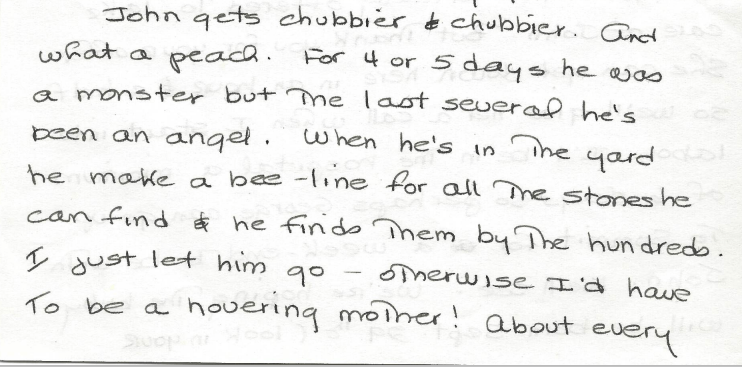 John gets chubbier & chubbier. And
what a peach. For 4 or 5 days he was
a monster but the last several he's
been an angel. When he's in the yard
he make a bee-line for all the stones he
can find & he finds them by the hundreds.
I just let him go - otherwise I'd have
to be a hovering mother! About every